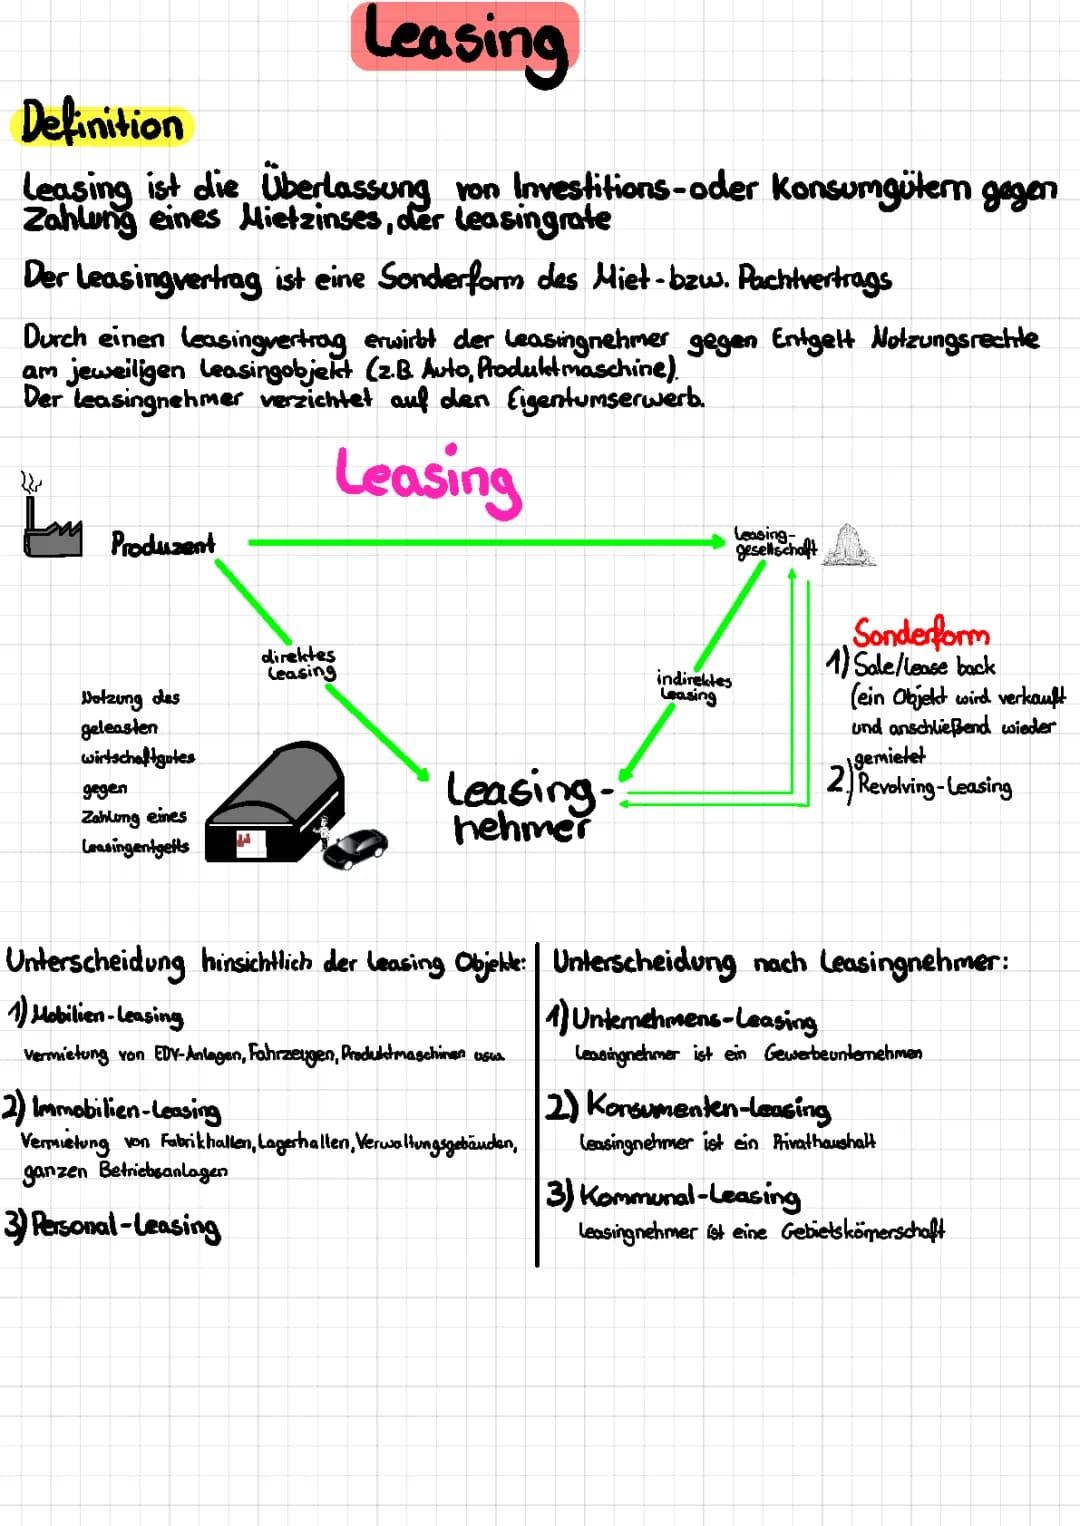 Leasing
Definition
Leasing ist die Überlassung von Investitions-oder Konsumgütern gegen
Zahlung eines Mietzinses, der Leasingrate
Der Leasingvertrag ist eine Sonderform des Miet-bzw. Pachtvertrags
Durch einen Leasingvertrag erwirbt der Leasingnehmer gegen Entgelt Nutzungsrechte
am jeweiligen Leasingobjekt (z.B. Auto, Produktmaschine).
Der Leasingnehmer verzichtet auf den Eigentumserwerb.
Leasing
Produzent
Leasing-
gesellschaft
direktes
Leasing
indirektes
Leasing
Sonderform
1) Sale/lease back
(ein Objekt wird verkauft
und anschließend wieder
gemietet
2.) Revolving-Leasing
Nutzung des
geleasten
wirtschaftgutes
gegen
Zahlung eines
Leasingentgelts
Leasing-
nehmer
Unterscheidung hinsichtlich der Leasing Objekte:
1) Mobilien-Leasing
Vermietung von EDV-Anlagen, Fahrzeugen, Produktmaschinen usw.
2) Immobilien-Leasing
Vermietung von Fabrikhallen, Lagerhallen, Verwaltungsgebäuden,
ganzen Betriebsanlagen
3) Personal-Leasing
Unterscheidung nach Leasingnehmer:
1) Unternehmens-Leasing
Leasingnehmer ist ein Gewerbeunternehmen
2) Konsumenten-Leasing
Leasingnehmer ist ein Privathaushalt
3) Kommunal-Leasing
Leasingnehmer ist eine Gebietskörperschaft